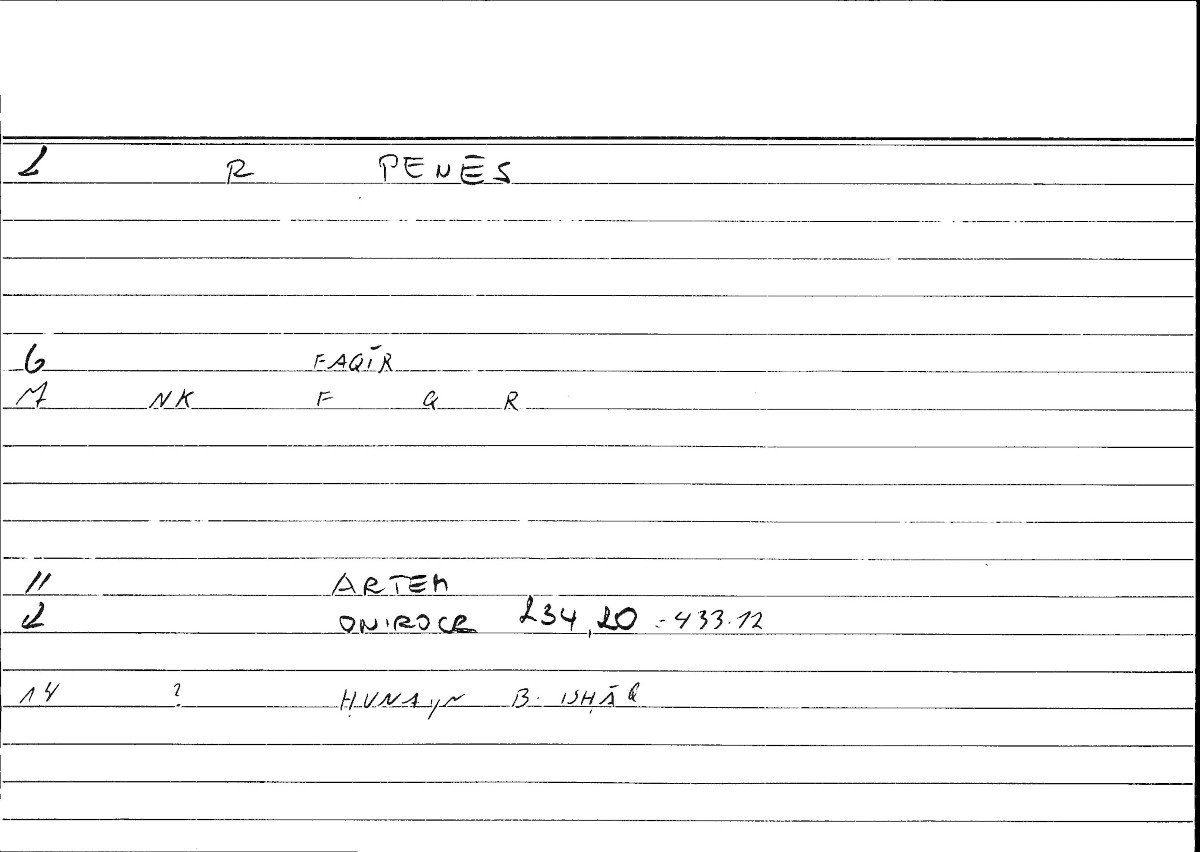 2 R PENĒS
6 FAQĪR
7 NK F Q R
11 ARTEM
12 ONIROCR 234,20 = 433.12
14 ? ḤUNAYN B. ISḤĀQ